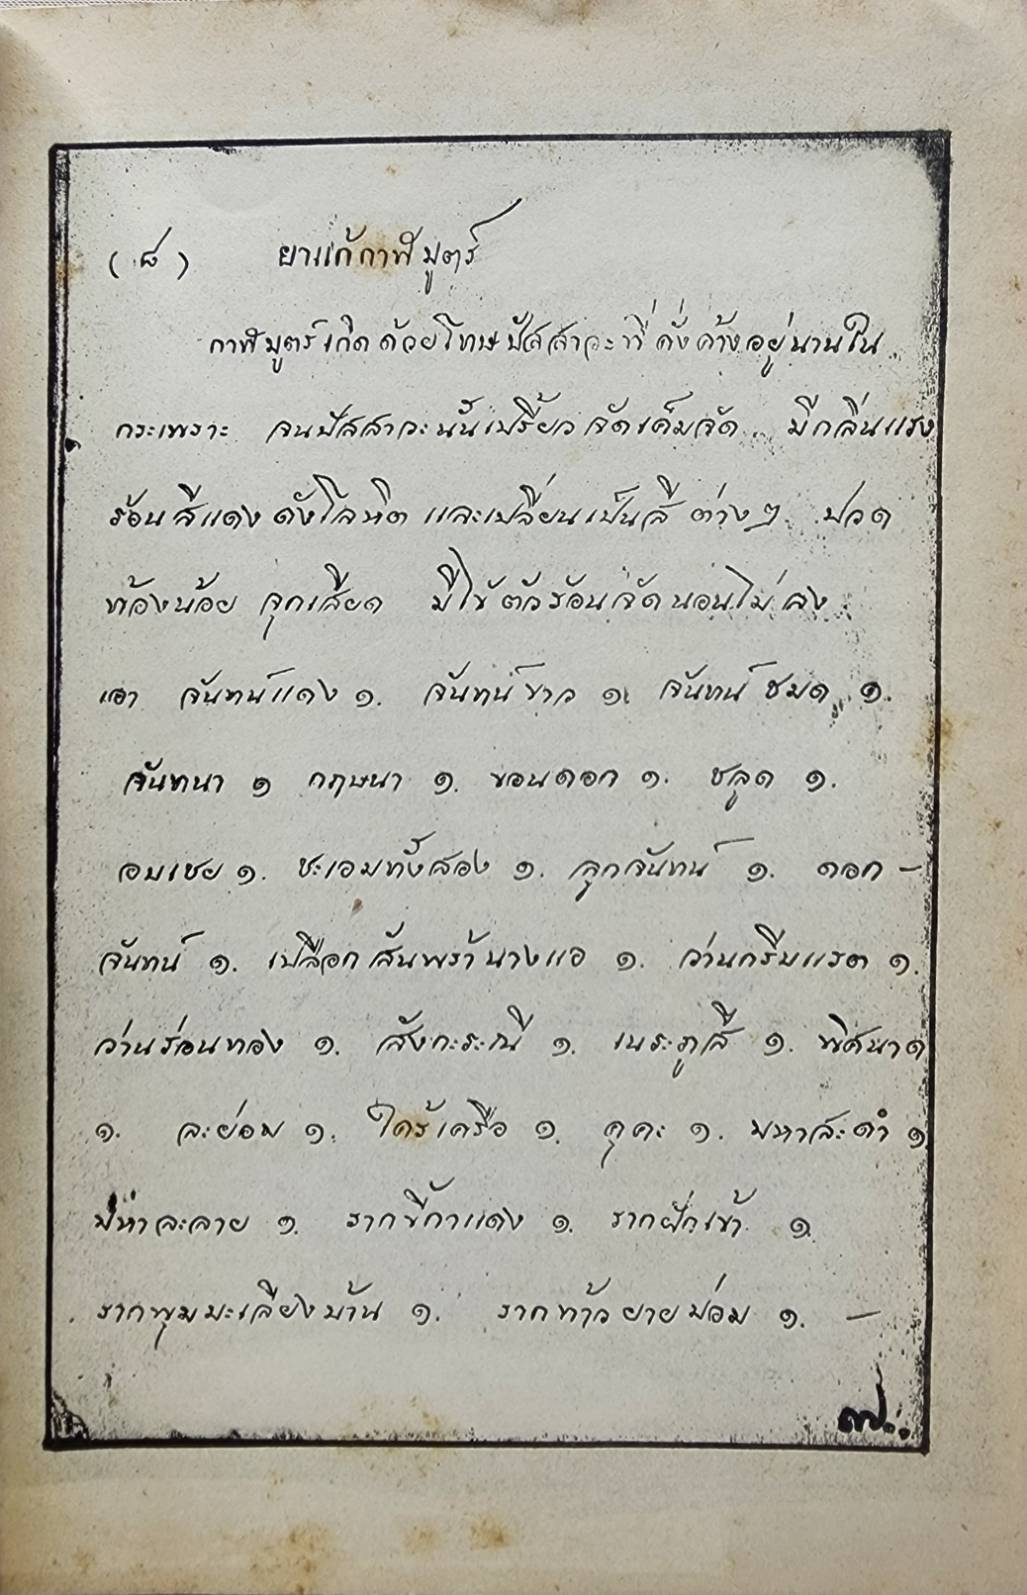 (๘) ยาแก้กาฬมูตร์
กาฬมูตร์เกิดด้วยโทษปัสสาวะที่คั่งค้างอยู่นานใน
กระเพราะ จนปัสสาวะนั้นเปรี้ยวจัดเค็มจัด มีกลิ่นแรง
ร้อนสีแดงดังโลหิต และเปลี่ยนเป็นสีต่างๆ ปวด
ท้องน้อย จุกเสียด มีไข้ตัวร้อนจัดนอนไม่ลง
เอา จันทน์แดง ๑. จันทน์ขาว ๑. จันทน์ชมด ๑.
จันทนา ๑ กฤษนา ๑. ขอนดอก ๑. ชลูด ๑.
อบเชย ๑. ชะเอมทั้งสอง ๑. ลูกจันทน์ ๑. ดอก -
จันทน์ ๑. เปลือกสันพร้านางแอ ๑. ว่านกรีบแรด ๑.
ว่านร่อนทอง ๑. สังกะระณี ๑. เนระภูสี ๑. พิศนาด
๑. ละย่อม ๑. ใคร้เครือ ๑. คุคะ ๑. มหาสะดำ ๑
มหาละลาย ๑. รากขี้กาแดง ๑. รากฝักเข้า ๑.
รากพุมมะเลียงบ้าน ๑. รากท้าวยายม่อม ๑. -